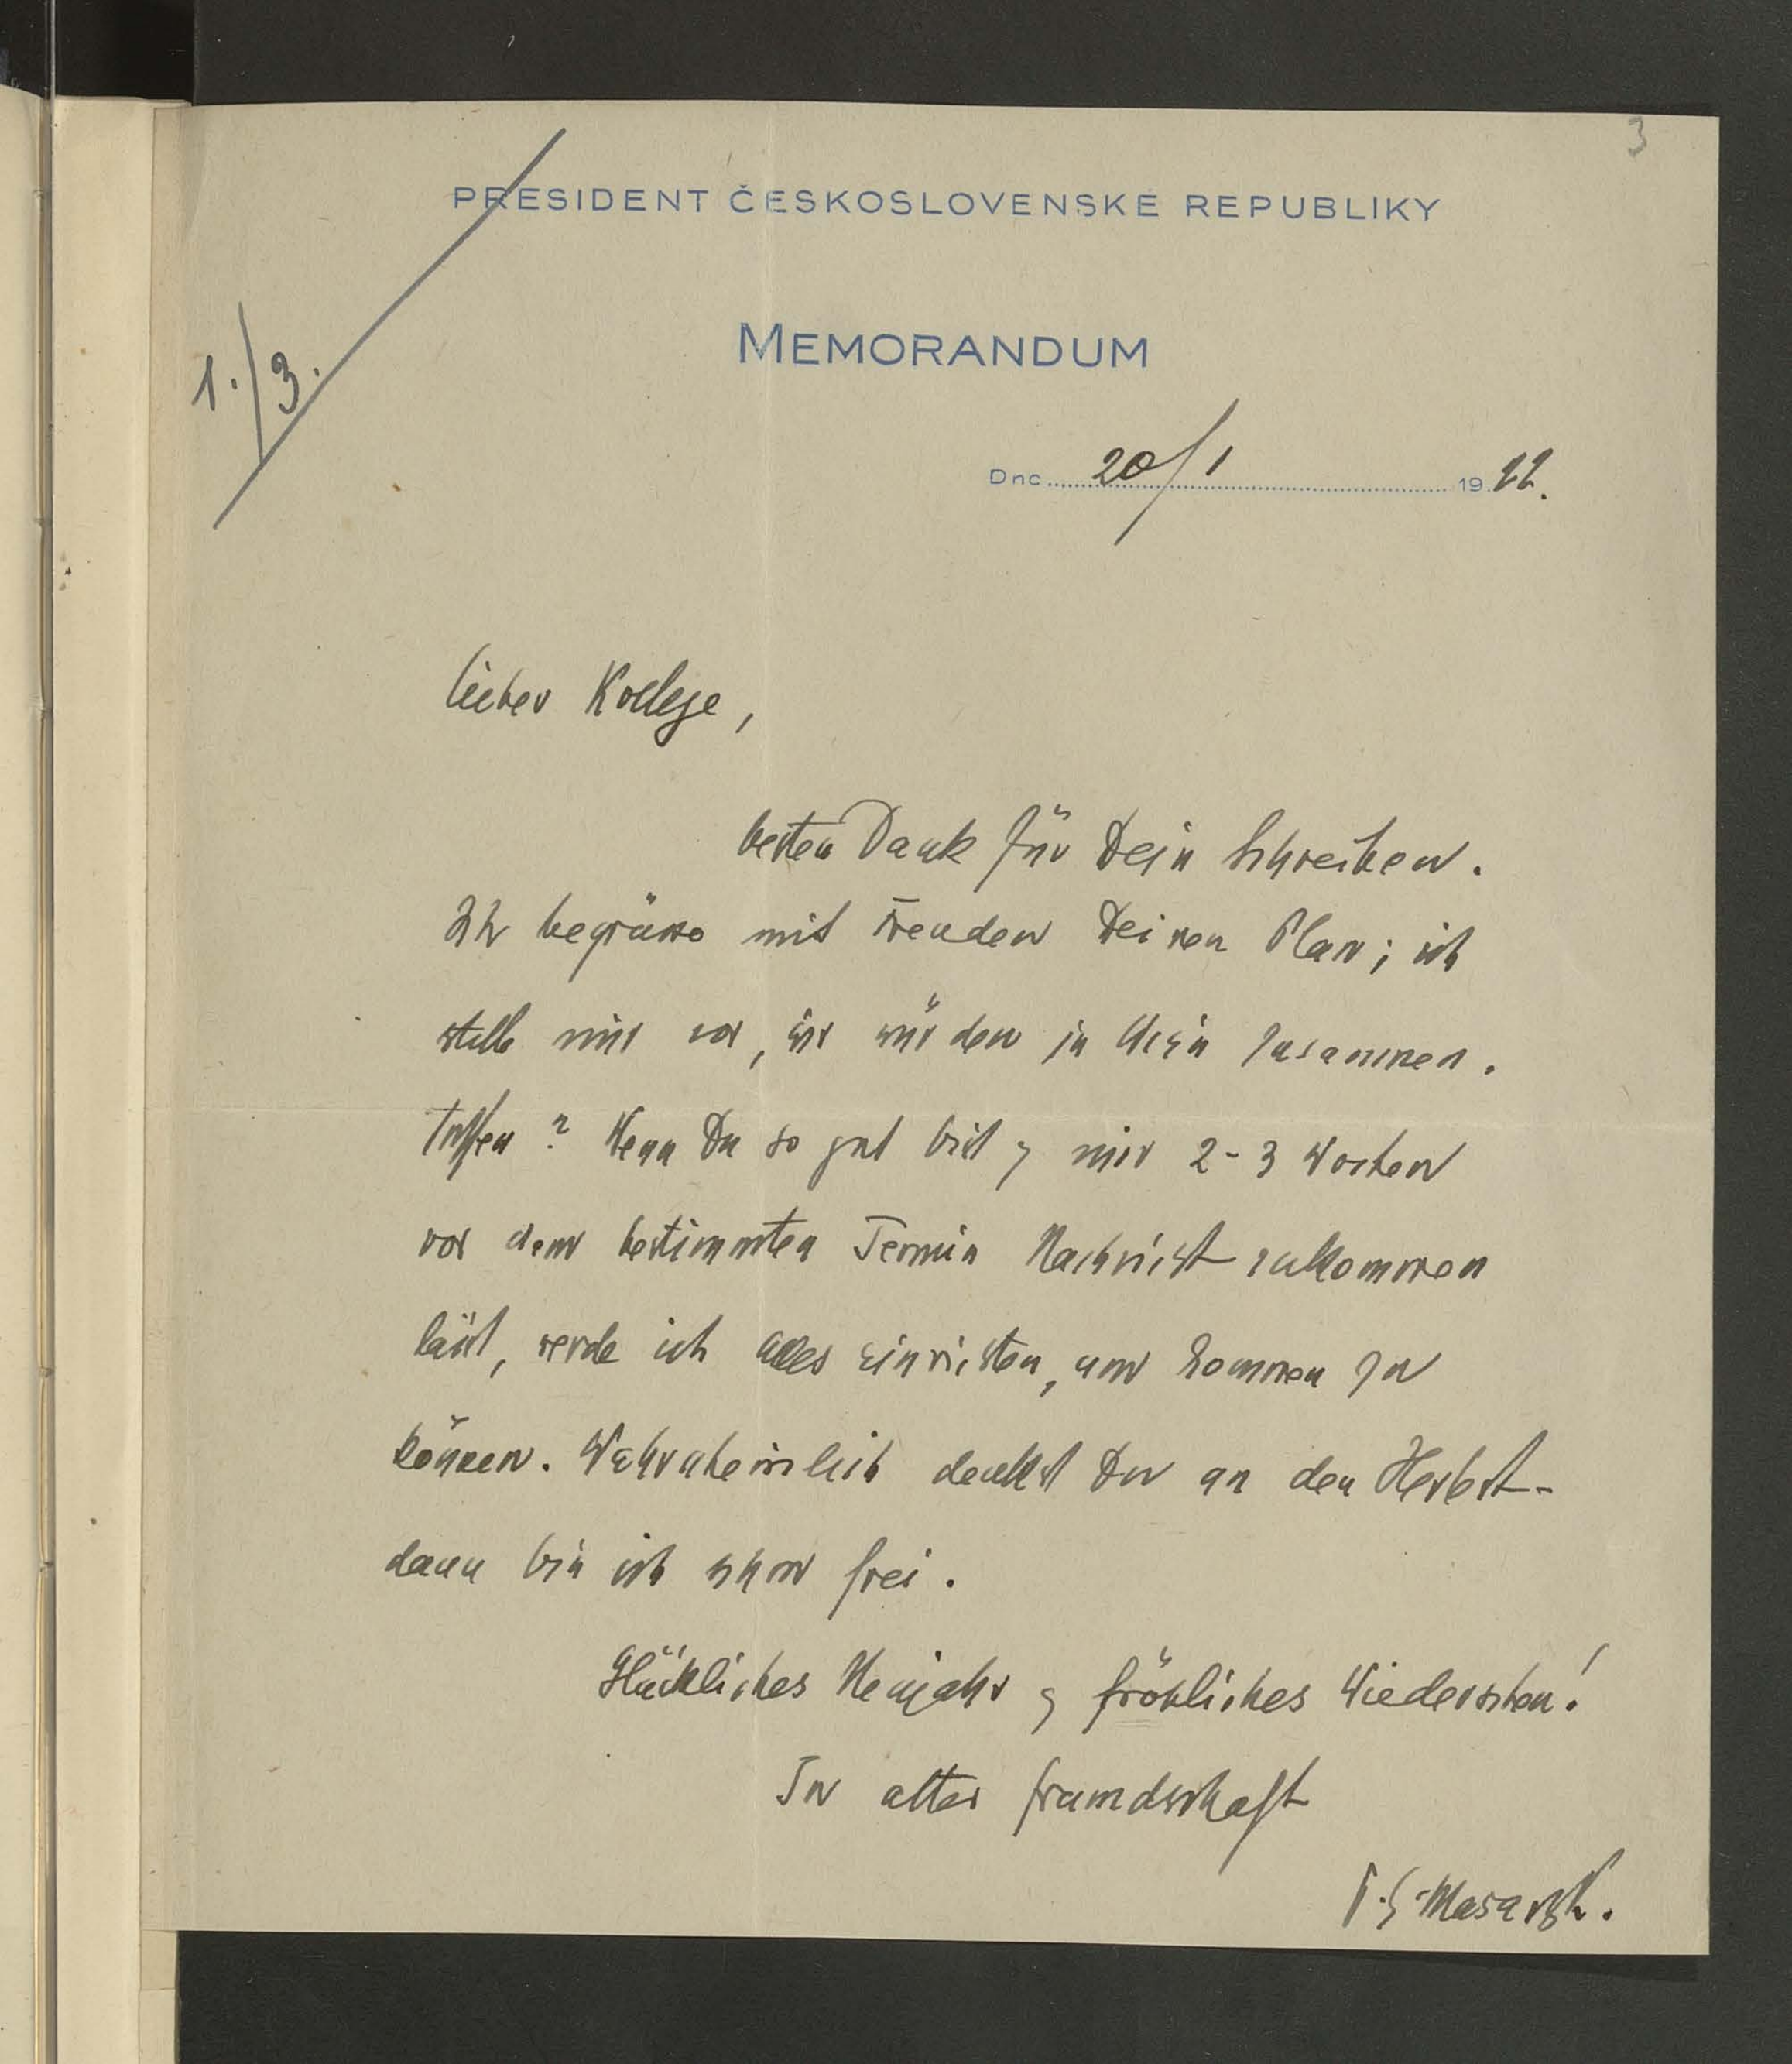 3
PRESIDENT ČESKOSLOVENSKÉ REPUBLIKY
MEMORANDUM
1./3.
Dne 20/1 1922.
Lieber Kollege,
besten Dank für Dein Schreiben.
Ich begrüsse mit Freuden Deinen Plan; ich
stelle mir vor, wir würden in Wien zusammen-
treffen? Wenn Du so gut bist & mir 2-3 Wochen
vor dem bestimmten Termin Nachricht zukommen
läßt, werde ich alles einrichten, um kommen zu
können. Wahrscheinlich denkst Du an den Herbst -
dann bin ich schon frei.
Glückliches Neujahr & fröhliches Wiedersehen!
In alter Freundschaft
T.G. Masaryk.